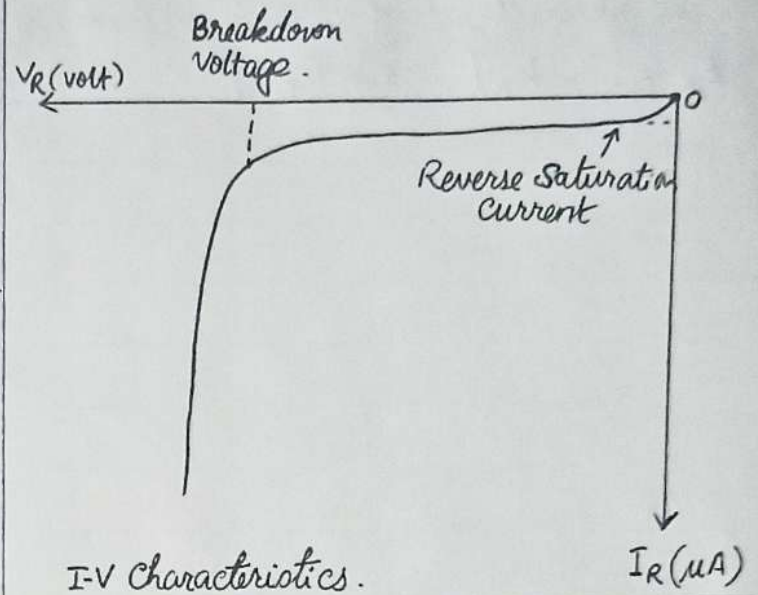 Breakdown
Voltage.
VR (volt)
O
Reverse Saturation
Current
IR (μA)
I-V Characteristics.